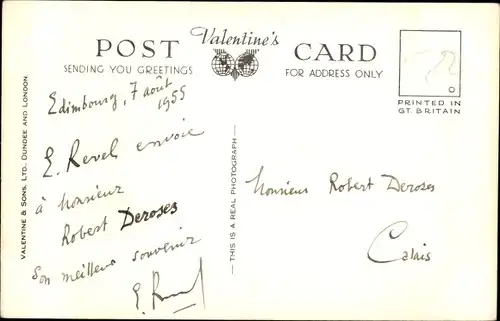 POST Valentine's CARD
SENDING YOU GREETINGS
FOR ADDRESS ONLY
PRINTED IN
GT. BRITAIN
VALENTINE & SONS, LTD., DUNDEE AND LONDON.
Edimbourg, 7 août
1955
E. Revel envoie
à Monsieur
Robert Deroses
Son meilleur souvenir
THIS IS A REAL PHOTOGRAPH
Monsieur Robert Deroses
Calais